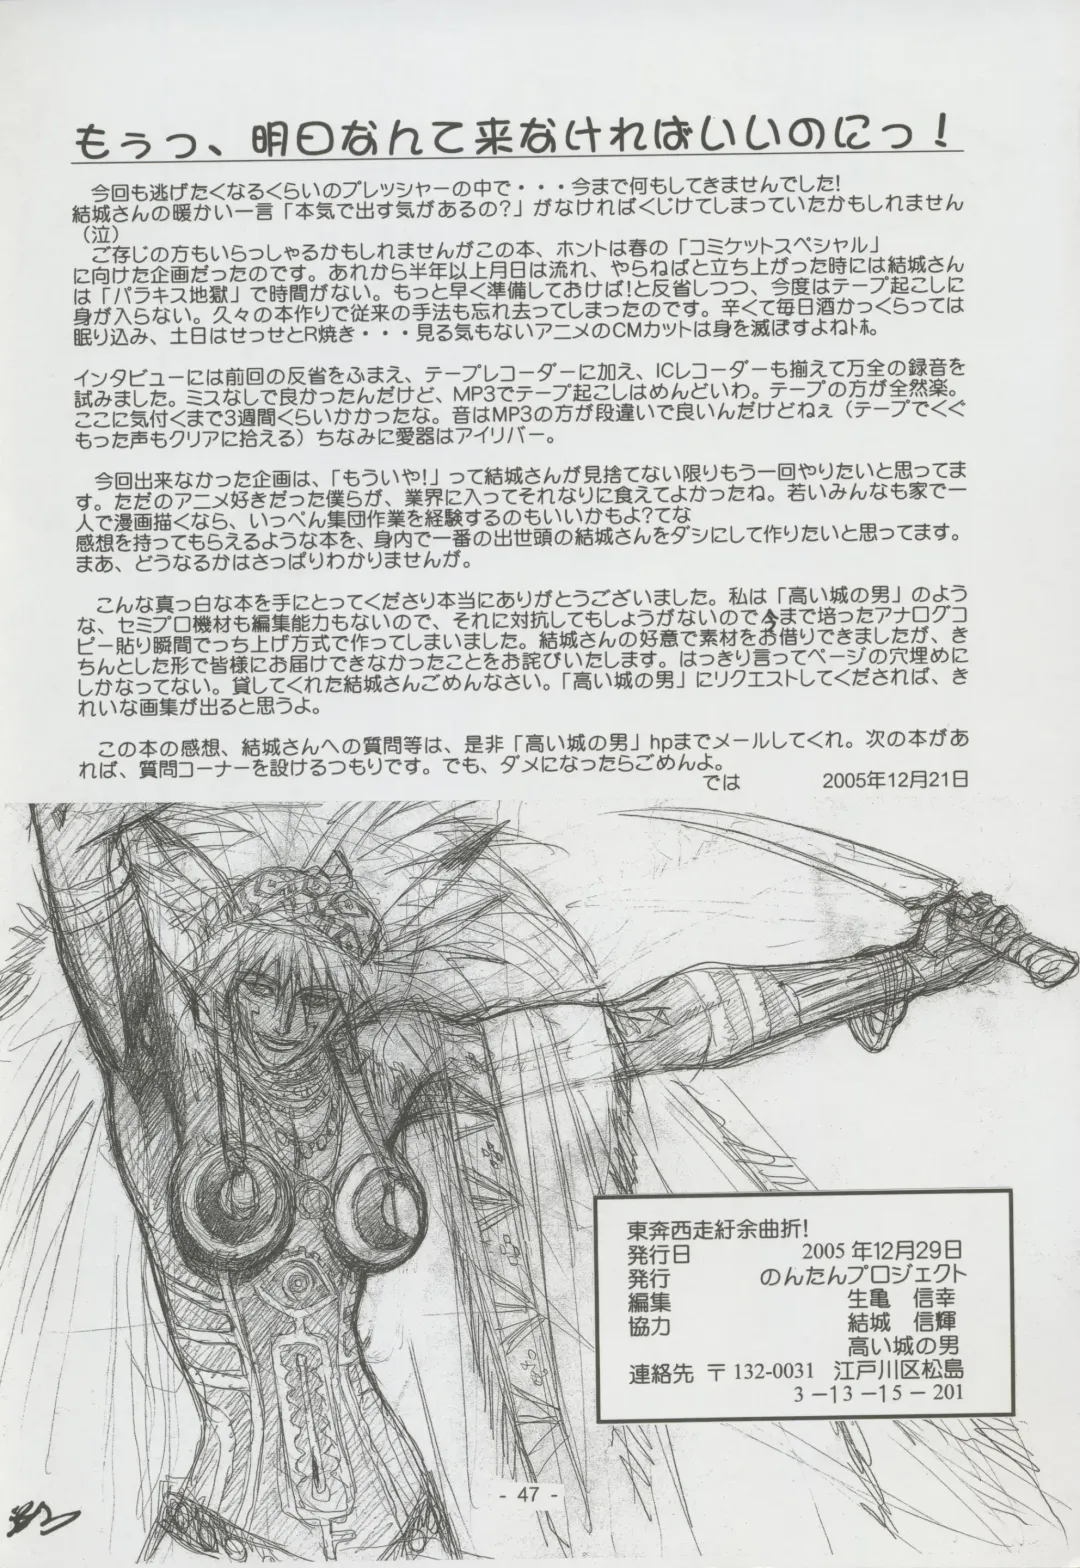 もぅっ、明日なんて来なければいいのにっ！
今回も逃げたくなるくらいのプレッシャーの中で・・・今まで何もしてきませんでした!
結城さんの暖かい一言「本気で出す気があるの?」がなければくじけてしまっていたかもしれません
（泣）
ご存じの方もいらっしゃるかもしれませんがこの本、ホントは春の「コミケットスペシャル」
に向けた企画だったのです。あれから半年以上月日は流れ、やらねばと立ち上がった時には結城さん
は「パラキス地獄」で時間がない。もっと早く準備しておけば!と反省しつつ、今度はテープ起こしに
身が入らない。久々の本作りで従来の手法も忘れ去ってしまったのです。辛くて毎日酒かっくらっては
眠り込み、土日はせっせとR焼き・・・見る気もないアニメのCMカットは身を滅ぼすよねﾄﾎ。
インタビューには前回の反省をふまえ、テープレコーダーに加え、ICレコーダーも揃えて万全の録音を
試みました。ミスなしで良かったんだけど、MP3でテープ起こしはめんどいわ。テープの方が全然楽。
ここに気付くまで3週間くらいかかったな。音はMP3の方が段違いで良いんだけどねぇ（テープでくぐ
もった声もクリアに拾える）ちなみに愛器はアイリバー。
今回出来なかった企画は、「もういや!」って結城さんが見捨てない限りもう一回やりたいと思ってま
す。ただのアニメ好きだった僕らが、業界に入ってそれなりに食えてよかったね。若いみんなも家で一
人で漫画描くなら、いっぺん集団作業を経験するのもいいかもよ?てな
感想を持ってもらえるような本を、身内で一番の出世頭の結城さんをダシにして作りたいと思ってます。
まあ、どうなるかはさっぱりわかりませんが。
こんな真っ白な本を手にとってくださり本当にありがとうございました。私は「高い城の男」のよう
な、セミプロ機材も編集能力もないので、それに対抗してもしょうがないので今まで培ったアナログコ
ピー貼り瞬間でっち上げ方式で作ってしまいました。結城さんの好意で素材をお借りできましたが、き
ちんとした形で皆様にお届けできなかったことをお詫びいたします。はっきり言ってページの穴埋めに
しかなってない。貸してくれた結城さんごめんなさい。「高い城の男」にリクエストしてくだされば、き
れいな画集が出ると思うよ。
この本の感想、結城さんへの質問等は、是非「高い城の男」hpまでメールしてくれ。次の本があ
れば、質問コーナーを設けるつもりです。でも、ダメになったらごめんよ。
では 2005年12月21日
東奔西走紆余曲折!
発行日 2005年12月29日
発行 のんたんプロジェクト
編集 生亀 信幸
協力 結城 信輝
高い城の男
連絡先 〒132-0031 江戸川区松島
3－13－15－201
- 47 -